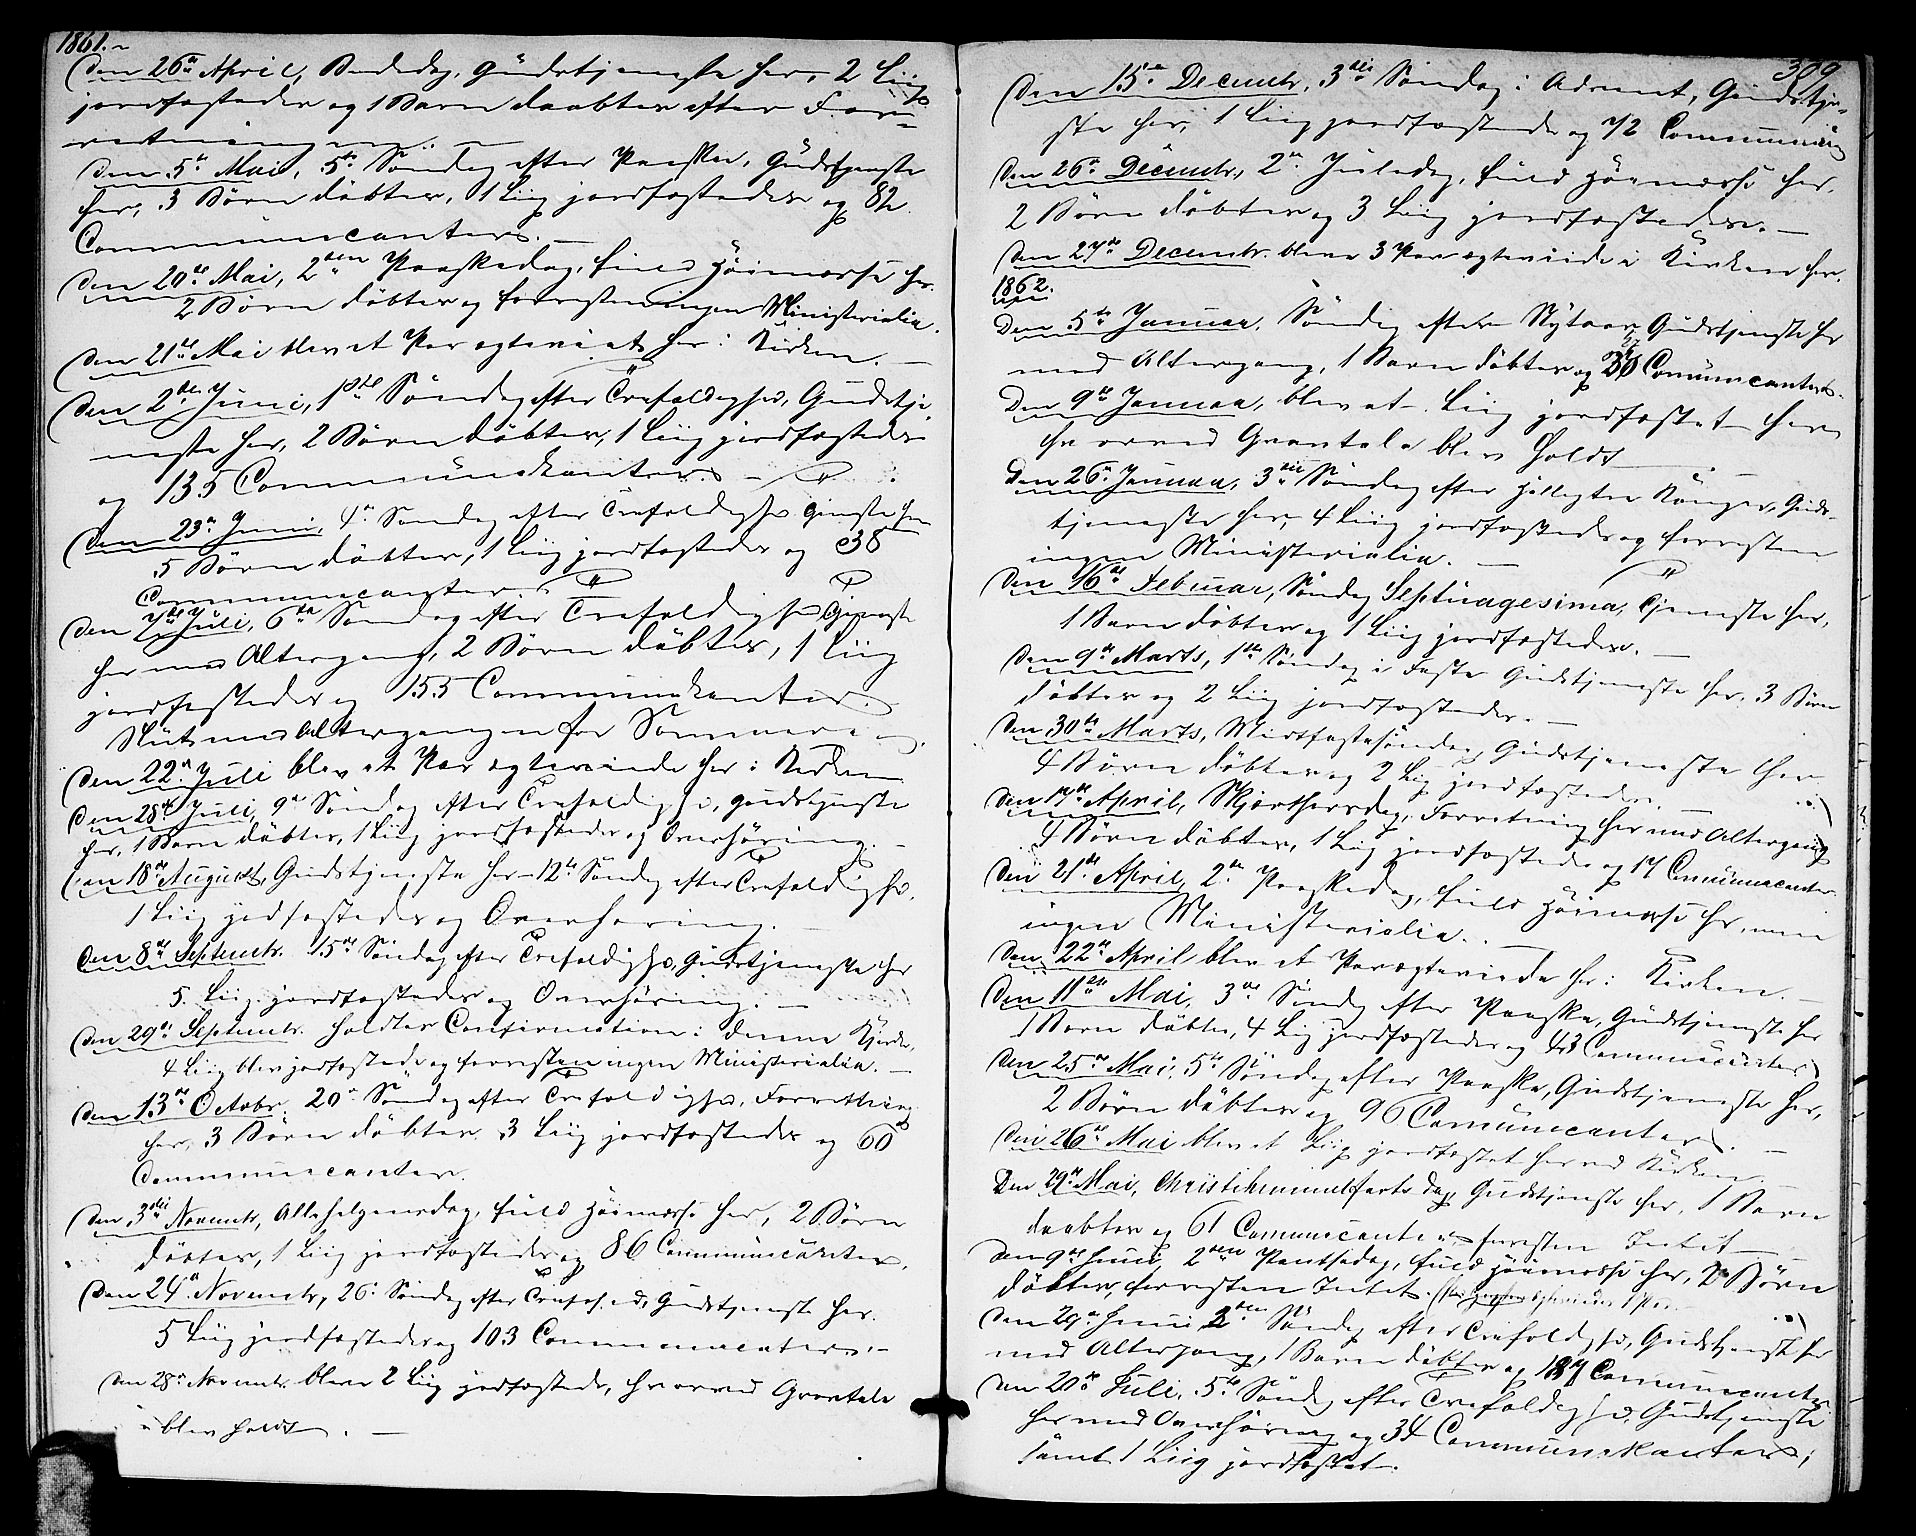 1861.
Den 26de April, Bededag, Gudstjeneste her, 2 Liig
jordfæstedes og 1 Barn daabtes efter For-
retningen.
Den 5te Mai, 5te Søndag efter Paaske, Gudstjeneste
her, 3 Børn döbtes, 1 Liig jordfæstedes og 82
Communicanter.
Den 20de Mai, 2den Paaskedag, fuld Höimesse her.
2 Børn döbtes og forresten ingen Ministerialia.
Den 21de Mai blev et Par ægteviet her i Kirken.
Den 2den Juni, 1ste Søndag efter Trefoldighed, Gudstje-
neste her, 2 Børn döbtes, 1 Liig jordfæstedes
og 135 Communikanter.
Den 23de Juni, 4de Søndag efter Trefoldighed Tjeneste her
5 Børn döbtes, 1 Liig jordfæstedes og 38
Communicanter.
Den 7de Juli, 6te Søndag efter Trefoldighed Tjeneste
her med Altergang, 2 Børn döbtes, 1 Liig
jordfæstedes og 155 Communikanter.
Sluttes Altergangen for Sommeren.
Den 22de Juli blev et Par ægteviede her i Kirken
Den 28de Juli, 9de Søndag efter Trefoldighed, Gudstjeneste
her, 1 Barn döbtes, 1 Liig jordfæstedes og Overhöring.
Den 18de August, Gudstjeneste her 12te Søndag efter Trefoldighed,
1 Liig jordfæstedes og Overhöring.
Den 8de Septembr. 15de Søndag efter Trefoldighed, Gudstjeneste her
5 Liig jordfæstedes og Overhöring.
Den 29de Septembr. holdtes Confirmation i denne Kirke,
4 Liig blev jordfæstede og forresten ingen Ministerialia.
Den 13de Octobr. 20de Søndag efter Trefoldighed, Forretning
her, 3 Børn döbtes, 3 Liig jordfæstedes og 60
Communicanter.
Den 3die Novembr, Allehelgensdag, fuld Höimesse her, 2 Børn
döbtes, 1 Liig jordfæstedes og 86 Communicanter.
Den 24de Novembr, 26de Søndag efter Trefold., Gudstjeneste her.
5 Liig jordfæstedes og 103 Communicanter.
Den 28de Novembr. bleve 2 Liig jordfæstede, hvorved Gravtale
blev holdt.
309
Den 15de Decembr, 3die Søndag i Advent, Gudstjene-
ste her, 1 Liig jordfæstedes og 72 Communicanter
Den 26de Decembr, 2den Juledag, fuld Höimesse her,
2 Børn döbtes og 3 Liig jordfæstedes.
Den 27de Decembr. bleve 3 Par ægteviede i Kirken her.
1862.
Den 5te Januar, Søndag efter Nytaar, Gudstjeneste her
med Altergang, 1 Barn döbtes og Communicanter.
Den 9de Januar, blev et Liig jordfæstet her
hvorved Gravtale blev holdt
Den 26de Januar, 3die Søndag efter Helligtre Konger, Guds-
tjeneste her, 4 Liig jordfæstedes og forresten
ingen Ministerialia.
Den 16de Februar, Søndag Septuagesima, Tjeneste her,
1 Barn döbtes og 1 Liig jordfæstedes.
Den 9de Marts, 1ste Søndag i Faste Gudstjeneste her, 3 Børn
döbtes og 2 Liig jordfæstedes.
Den 30te Marts, Midfastesöndag, Gudstjeneste her
4 Børn döbtes og 2 Liig jordfæstedes.
Den 17de April, Skjærthorsdag, Forretning her med Altergang
4 Børn döbtes, 1 Liig jordfæstedes og 17 Communicanter.
Den 21de April, 2den Paaskedag, fuld Höimesse her, men
ingen Ministerialia.
Den 22de April blev et Par ægteviede her i Kirken.
Den 11te Mai, 3die Søndag efter Paaske, Gudstjeneste her
1 Barn döbtes, 4 Liig jordfæstedes og 43 Communicanter
Den 25de Mai, 5te Søndag efter Paaske, Gudstjeneste her,
2 Børn döbtes og 96 Communicanter.
Den 26de Mai blev et Liig jordfæstet her ved Kirken.
Den 29de Mai, Christi himmelfarts dag, Gudstjeneste her, 1 Barn
daabtes og 61 Communicanter forresten Intet
Den 9de Juni, 2den Pintsedag, fuld Höimesse her, 2 Børn
döbtes, forresten Intet.
Den 29de Juni, 2den Søndag efter Trefoldighed, Gudstjeneste her
med Altergang, 1 Barn döbtes og 187 Communicanter.
Den 20de Juli, 5te Søndag efter Trefoldighed, Gudstjeneste
her med Overhöring og 34 Communikanter,
samt 1 Liig jordfæstet.